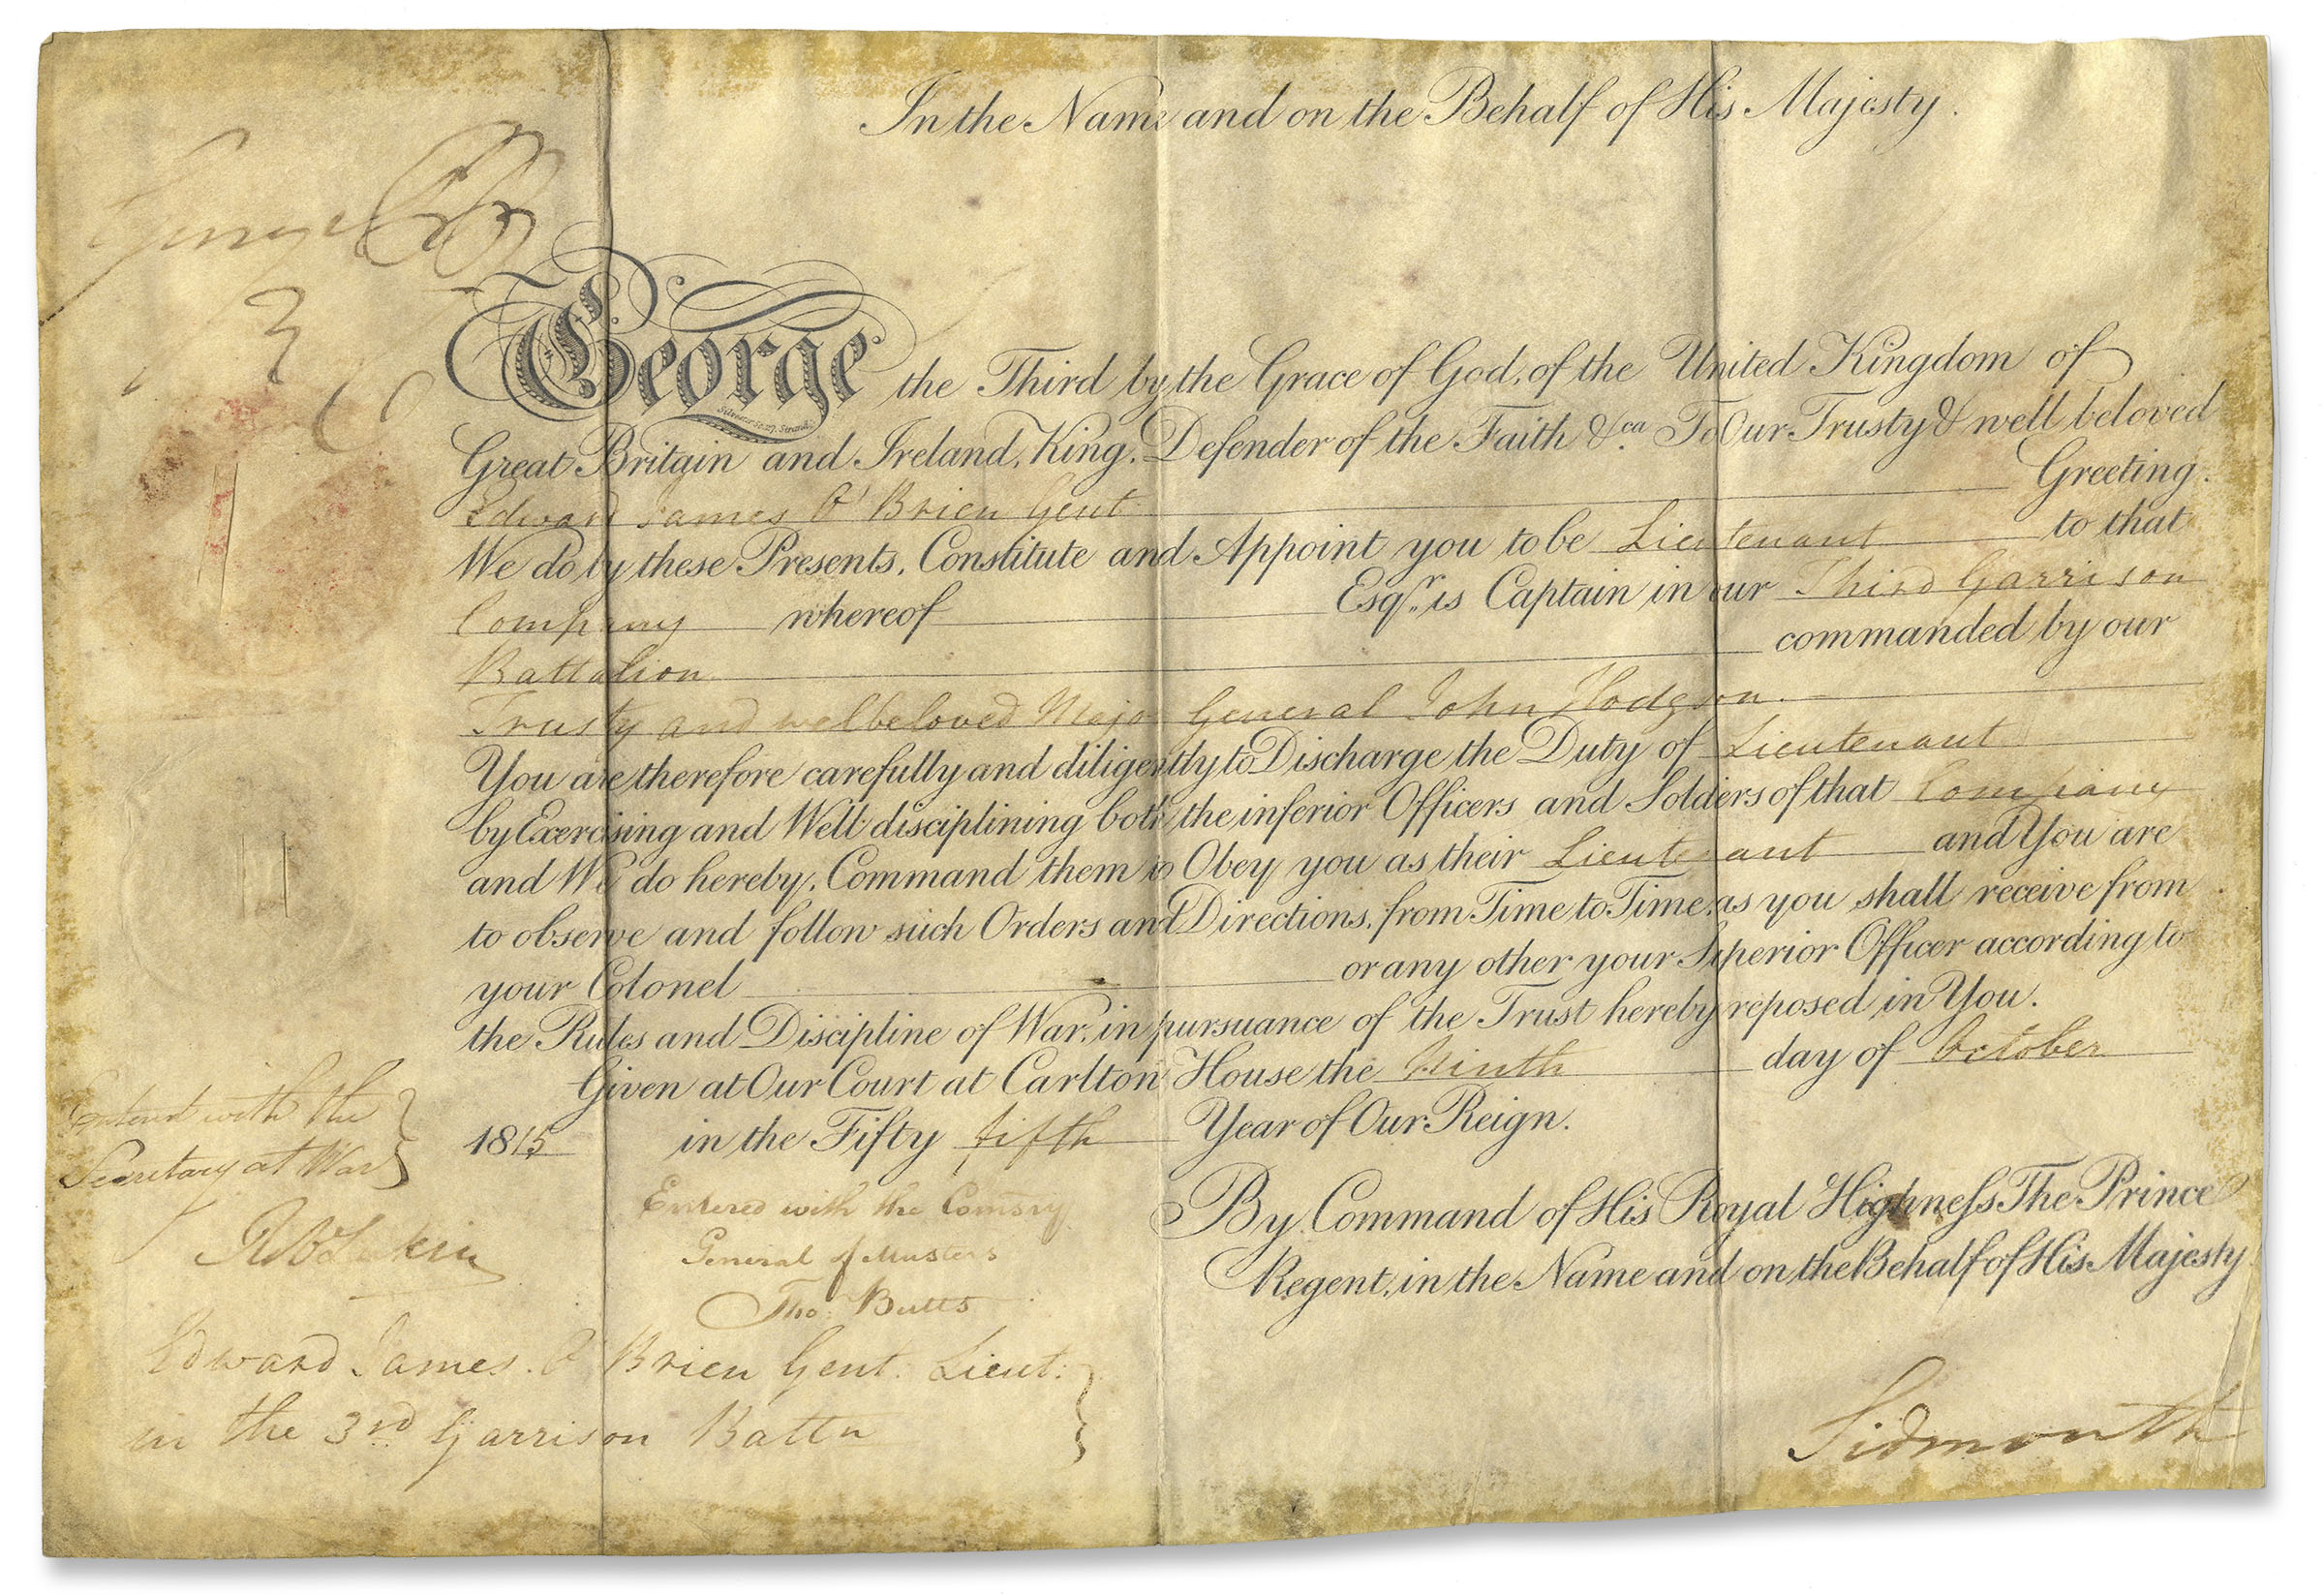 In the Name and on the Behalf of His Majesty.
George PR
George the Third by the Grace of God, of the United Kingdom of
Great Britain and Ireland, King, Defender of the Faith &ca. To Our Trusty & well beloved
Edward James O'Brien Gent Greeting.
We do by these Presents, Constitute and Appoint you to be Lieutenant to that
Company whereof Esqr. is Captain in our Third Garrison
Battalion commanded by our
Trusty and welbeloved Major General John Hodgson.
You are therefore carefully and diligently to Discharge the Duty of Lieutenant
by Exercising and Well disciplining both the inferior Officers and Soldiers of that Company
and We do hereby, Command them to Obey you as their Lieutenant and You are
to observe and follow such Orders and Directions, from Time to Time, as you shall receive from
your Colonel or any other your Superior Officer according to
the Rules and Discipline of War, in pursuance of the Trust hereby reposed in You.
Given at Our Court at Carlton House the Ninth day of October
1815 in the Fifty fifth Year of Our Reign.
By Command of His Royal Highness The Prince
Regent, in the Name and on the Behalf of His Majesty
Sidmouth
Enterd with the
Secretary at War
Entered with the Comsry
General of Musters
Tho: Butts
Edward James O'Brien Gent. Lieut:
in the 3rd Garrison Battn